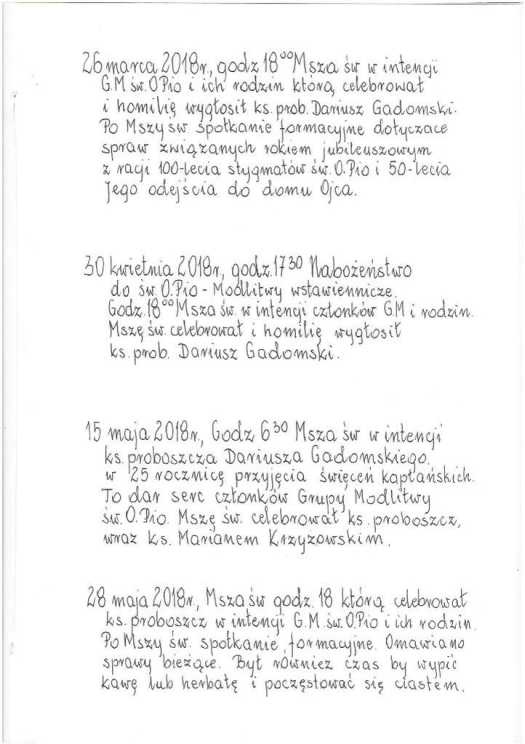 26 marca 2018r., godz 18⁰⁰ Msza św w intencji
G.M św. O.Pio i ich rodzin którą celebrował
i homilię wygłosił ks. prob. Dariusz Gadomski.
Po Mszy św spotkanie formacyjne dotyczące
spraw związanych rokiem jubileuszowym
z racji 100-lecia stygmatów św. O.Pio i 50-lecia
Jego odejścia do domu Ojca.
30 kwietnia 2018r., godz. 17³⁰ Nabożeństwo
do św. O.Pio - Modlitwy wstawiennicze.
Godz. 18⁰⁰ Msza św. w intencji członków G.M i rodzin.
Mszę św. celebrował i homilię wygłosił
ks. prob. Dariusz Gadomski.
15 maja 2018r., Godz 6³⁰ Msza św w intencji
ks. proboszcza Dariusza Gadomskiego,
w 25 rocznicę przyjęcia święceń kapłańskich.
To dar serc członków Grupy Modlitwy
św. O.Pio. Mszę św. celebrował ks. proboszcz,
wraz ks. Marianem Krzyzowskim.
28 maja 2018r., Msza św godz. 18 którą celebrował
ks. proboszcz w intencji G.M. św. O.Pio i ich rodzin.
Po Mszy św. spotkanie formacyjne. Omawiano
sprawy bieżące. Był również czas by wypić
kawę lub herbatę i poczęstować się ciastem.